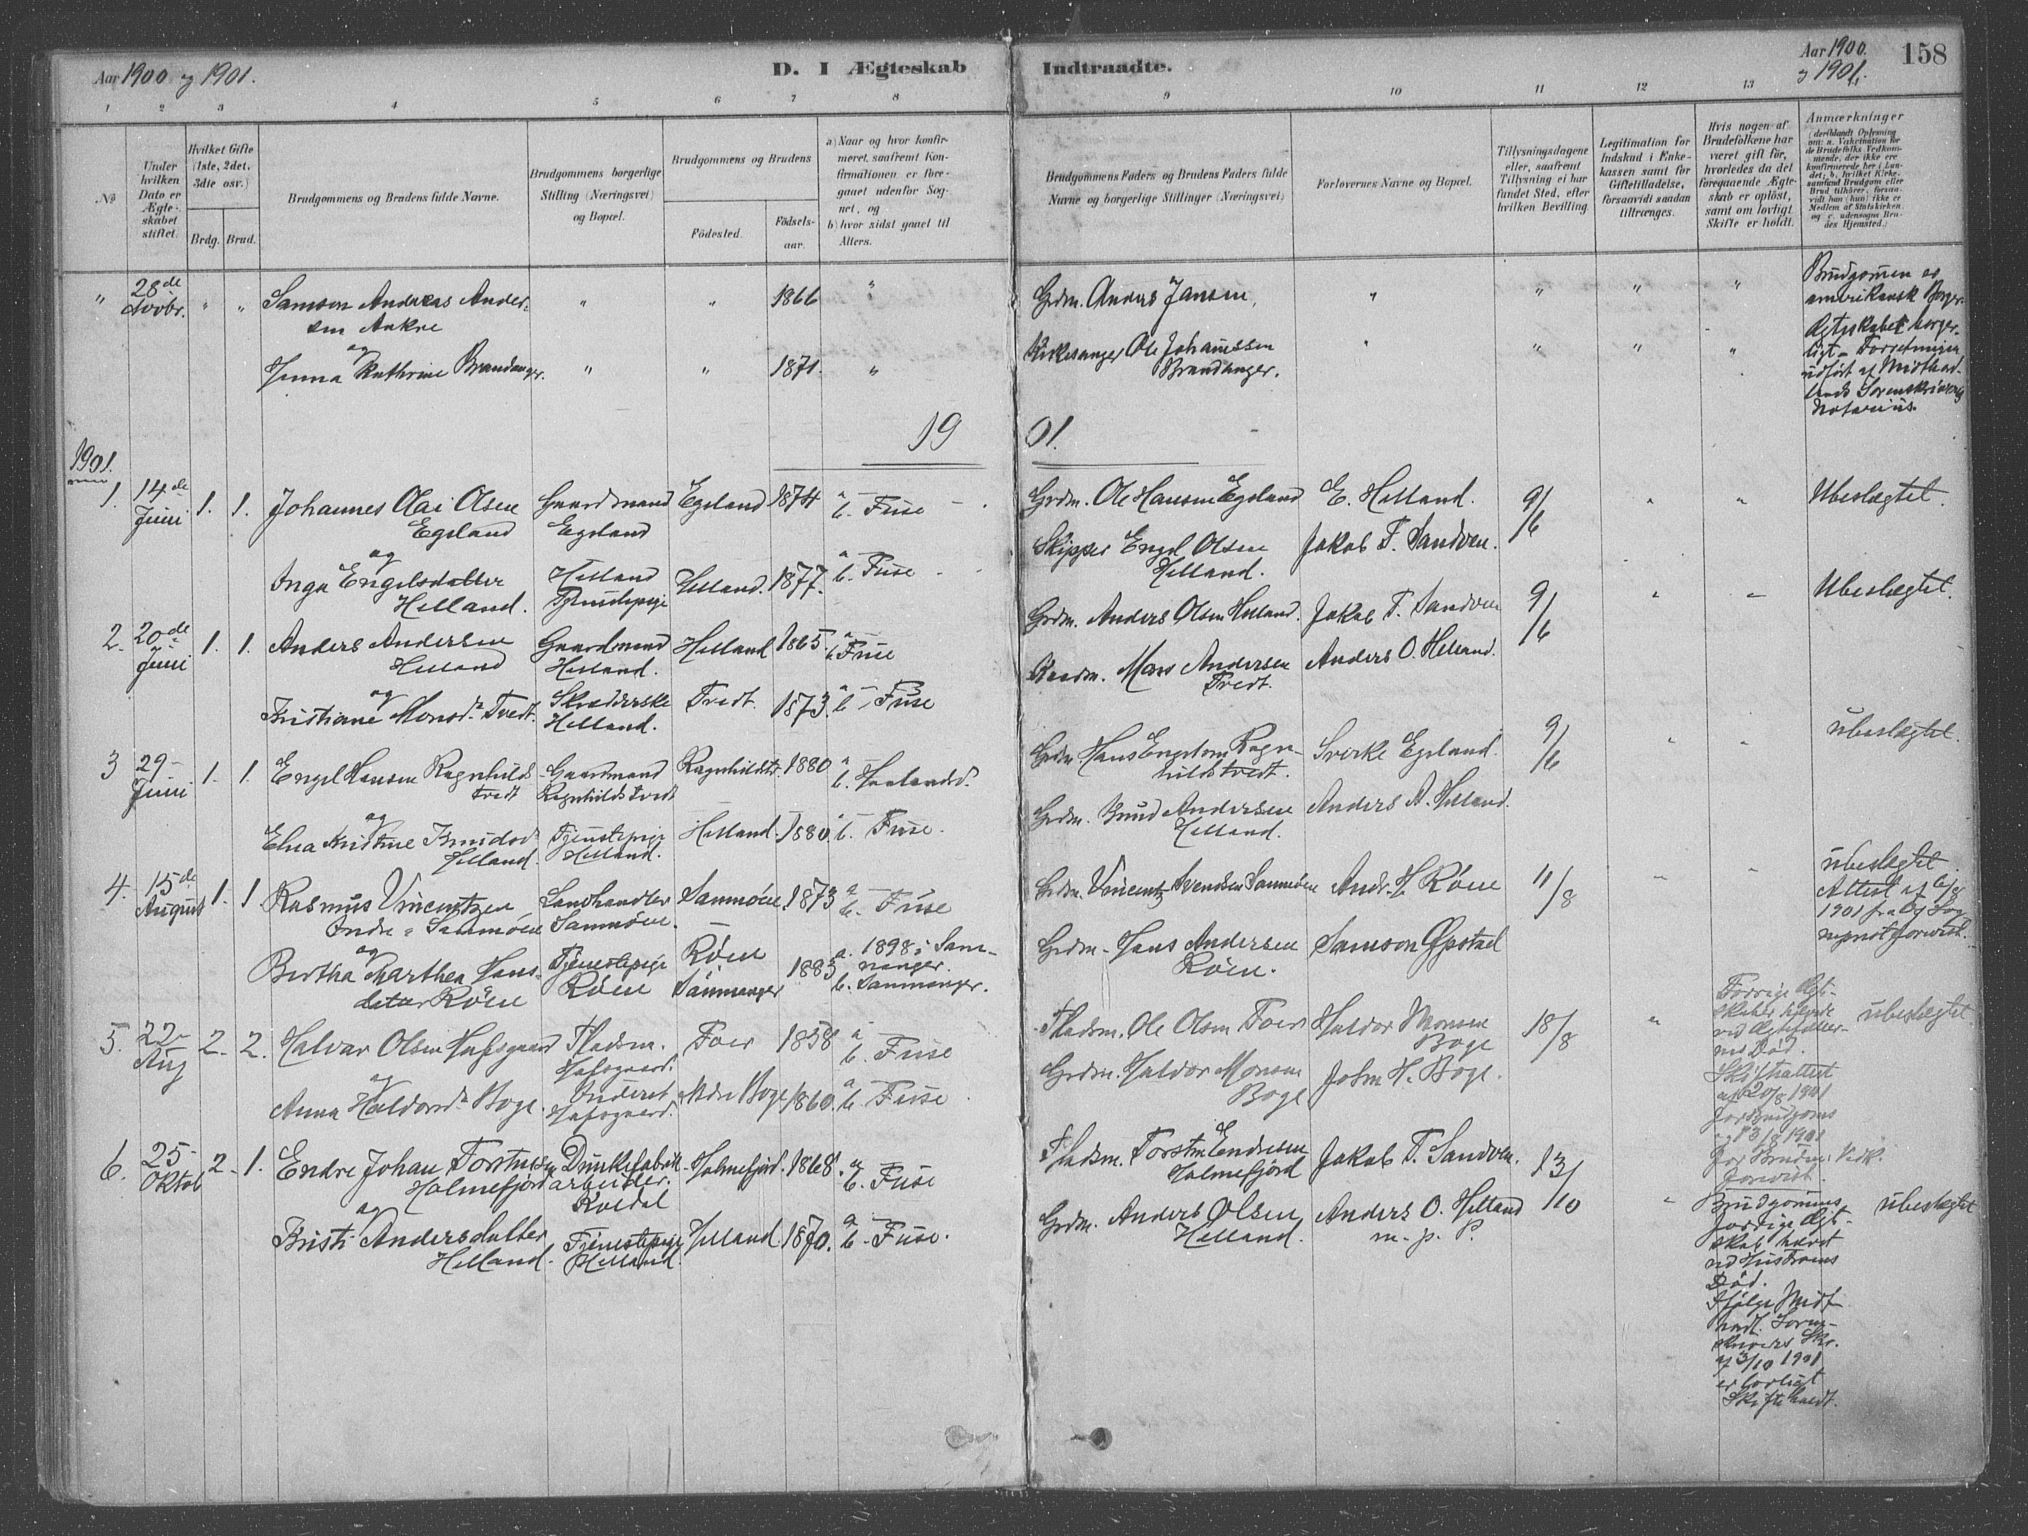 Aar 1900 og 1901.
D. I Ægteskab
Indtraadte.
Aar 1900.
og 1901.
158
1 2 3 4 5 6 7 8
9 10 11 12 13
No
Under hvilken Dato er Ægteskabet stiftet.
Hvilket Gifte (1ste, 2det, 3die osv.)
Brdg. Brud.
Brudgommens og Brudens fulde Navne.
Brudgommens borgerlige Stilling (Næringsvei) og Bopæl.
Brudgommens og Brudens
Födested.
Födselsaar.
a) Naar og hvor konfirmeret, saafremt Konfirmationen er foregaaet udenfor Sognet, og
b) hvor sidst gaaet til Alters.
Brudgommens Faders og Brudens Faders fulde Navne og borgerlige Stillinger (Næringsvei)
Forlovernes Navne og Bopæl.
Tillysningsdagene eller, saafremt Tillysning ei har fundet Sted, efter hvilken Bevilling
Legitimation for Indskud i Enkekassen samt for Giftetilladelse, forsaavidt saadan tiltrænges.
Hvis nogen af Brudefolkene har været gift før, hvorledes da det foregaaende Ægteskab er oplöst, samt om lovligt Skifte er holdt.
Anmærkninger
" 28de Novbr. " " Samson Andreas Andersen Aakre " " 1866 "
Grdm. Anders Jansen, " " " "
Brudgomen er amerikansk Borger.
og
Jenna Kathrine Brandanger. " " 1871. "
Kirkesanger Ole Johanessen Brandanger. " " " "
Ægteskabet borgerligt. Forretningen udført af Midthordlands Sorenskriver og Notarius.
19 01.
1901.
1. 14de Juni 1. 1. Johannes Olai Olsen Egeland Gaardmand Egeland Egeland 1874 a b. Fuse
Grdm. Ole Hansen Egeland E. Helland. 9/6 " " Ubeslægtet.
og
Inga Engelsdatter Helland. Helland Tjenestepige Helland. 1877. a b. Fuse
Skipper Engel Olsen Helland. Jakob T. Sandven.
2. 20de Juni 1. 1. Anders Andersen Helland Gaardmand Helland. Helland 1865. a b. Fuse
Grdm. Anders Olsen Helland. Jakob T. Sandven 9/6 " " Ubeslægtet.
og
Kristiane Monsdr Tvedt. Skrædderske Helland. Tvedt. 1873. a b. Fuse
Mons Andersen Tvedt. Anders O. Helland.
3 29- Juni 1. 1. Engel Hansen Ragnhildstvedt Gaardmand Ragnhildstvedt Ragnhildstv. 1880 a b.
Grdm. Hans Engelsen Ragnhildstvedt. Sverke Egeland. 9/6 " " ubeslægtet.
og
Elna Kristine Knudsd. Helland. Tjenestepige Helland. Helland. 1880. a b. Fuse.
Grdm. Knud Andersen Helland. Anders A. Helland.
4. 15de August 1. 1 Rasmus Vincentzen Indre Sammöen Landhandler Sammöen. Sammöen. 1873 a b. Fuse
Grdm. Vincentz Svendsen Sammöen Andr. H. Röen 11/8 " " ubeslægtet
Attest af 6/8 1901 fra
og
Bertha Marthea Hansdatter Röen Tjenestepige Röen Röen Sammanger 1883 a. 1898 i Sammanger. b. Sammanger.
Grdm. Hans Andersen Röen. Samson Opstad
5. 22- Aug 2. 2. Halvar Olsen Hafsgaard Pladsm. Hafsgaard. Foer 1858 a b. Fuse
Pladsm. Ole Olsen Foer Haldor Monsen Boge 18/8 " ubeslægtet
Forrige Ægteskaber hævede ved Ægtefællernes Död.
Skifteattest af 20/8 1901 for Brudgoms og 13/8 1901 for Brudens Vedk. forevist.
og
Anna Haldorsdr Boge. Inderst Hafsgaard. Indre Boge 1860. a b. Fuse
Grdm. Haldor Monsen Boge John H. Boge.
6. 25- Oktob 2. 1. Endre Johan Torstensen Holmefjord arbeider. Holmefjord. 1868. a b. Fuse
Pladsm. Torsten Endresen Holmefjord Jakob T. Sandven. 13/10 " ubeslægtet
Brudgomens forrige Ægteskab hævet ved Hustruens Död.
Ifölge Midthordl. Sorenskrivers Skr. af 3/10 1901 er lovligt Skifte holdt.
og
Kristi Andersdatter Helland. Tjenestepige Helland. Helland. 1870. a b. Fuse.
Grdm. Anders Olsen Helland. Anders O. Helland m. p. P.